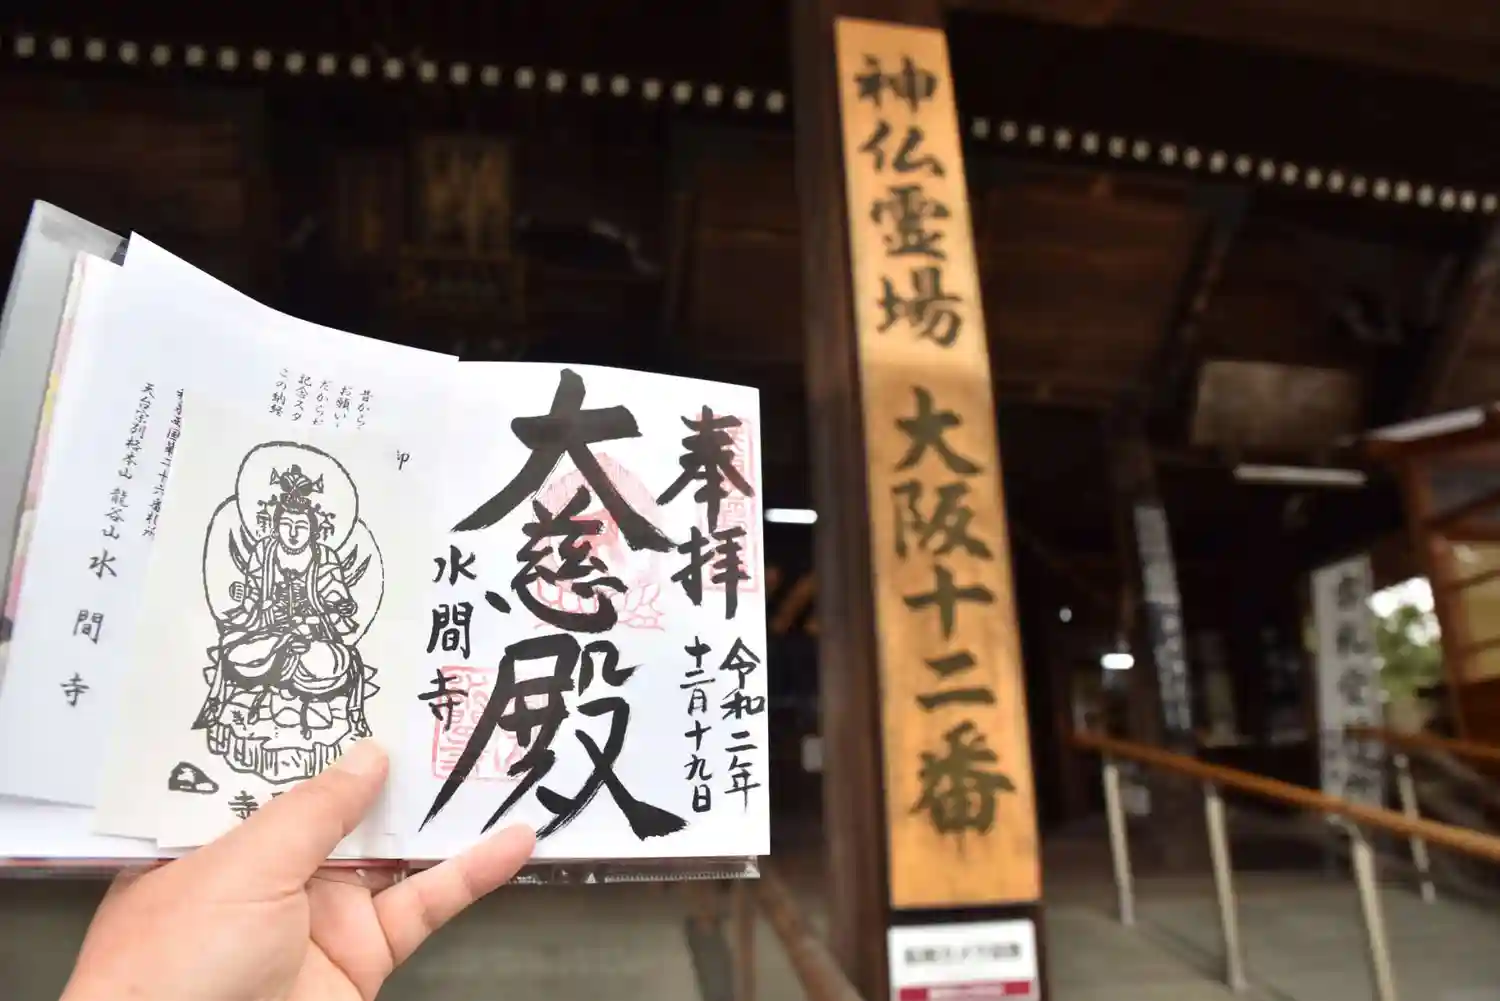 神仏霊場 大阪十二番
奉拝
令和二年
十二月十九日
大慈殿
水間寺
昔から
お願い
だからわ
記念スタ
この納経
印
天台宗別格本山 龍谷山 水間寺
寺